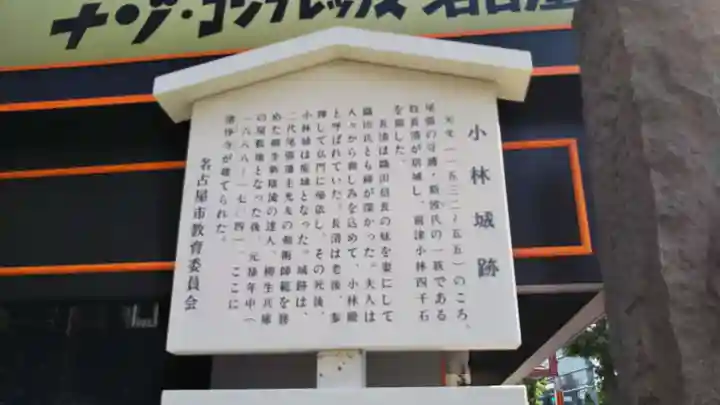 ナゾ・コンプレックス名古屋
小林城跡
天文(一五三二~五五)のころ、
尾張の守護・斯波氏の一族である
牧長清が築城し、前津小林四千石
を領した。
長清は織田信長の妹を妻にして
織田氏とも縁が深かった。夫人は
人々から親しみを込めて、小林殿
と呼ばれていた。長清は老後、参
禅して仏門に帰依し、その死後、
小林城は廃城となった。城跡は、
二代尾張藩主光友の剣術師範を務
めた柳生新陰流の達人、柳生兵庫
の屋敷地となった後、元禄年中(
一六八八~一七〇四)、ここに
清浄寺が建てられた。
名古屋市教育委員会